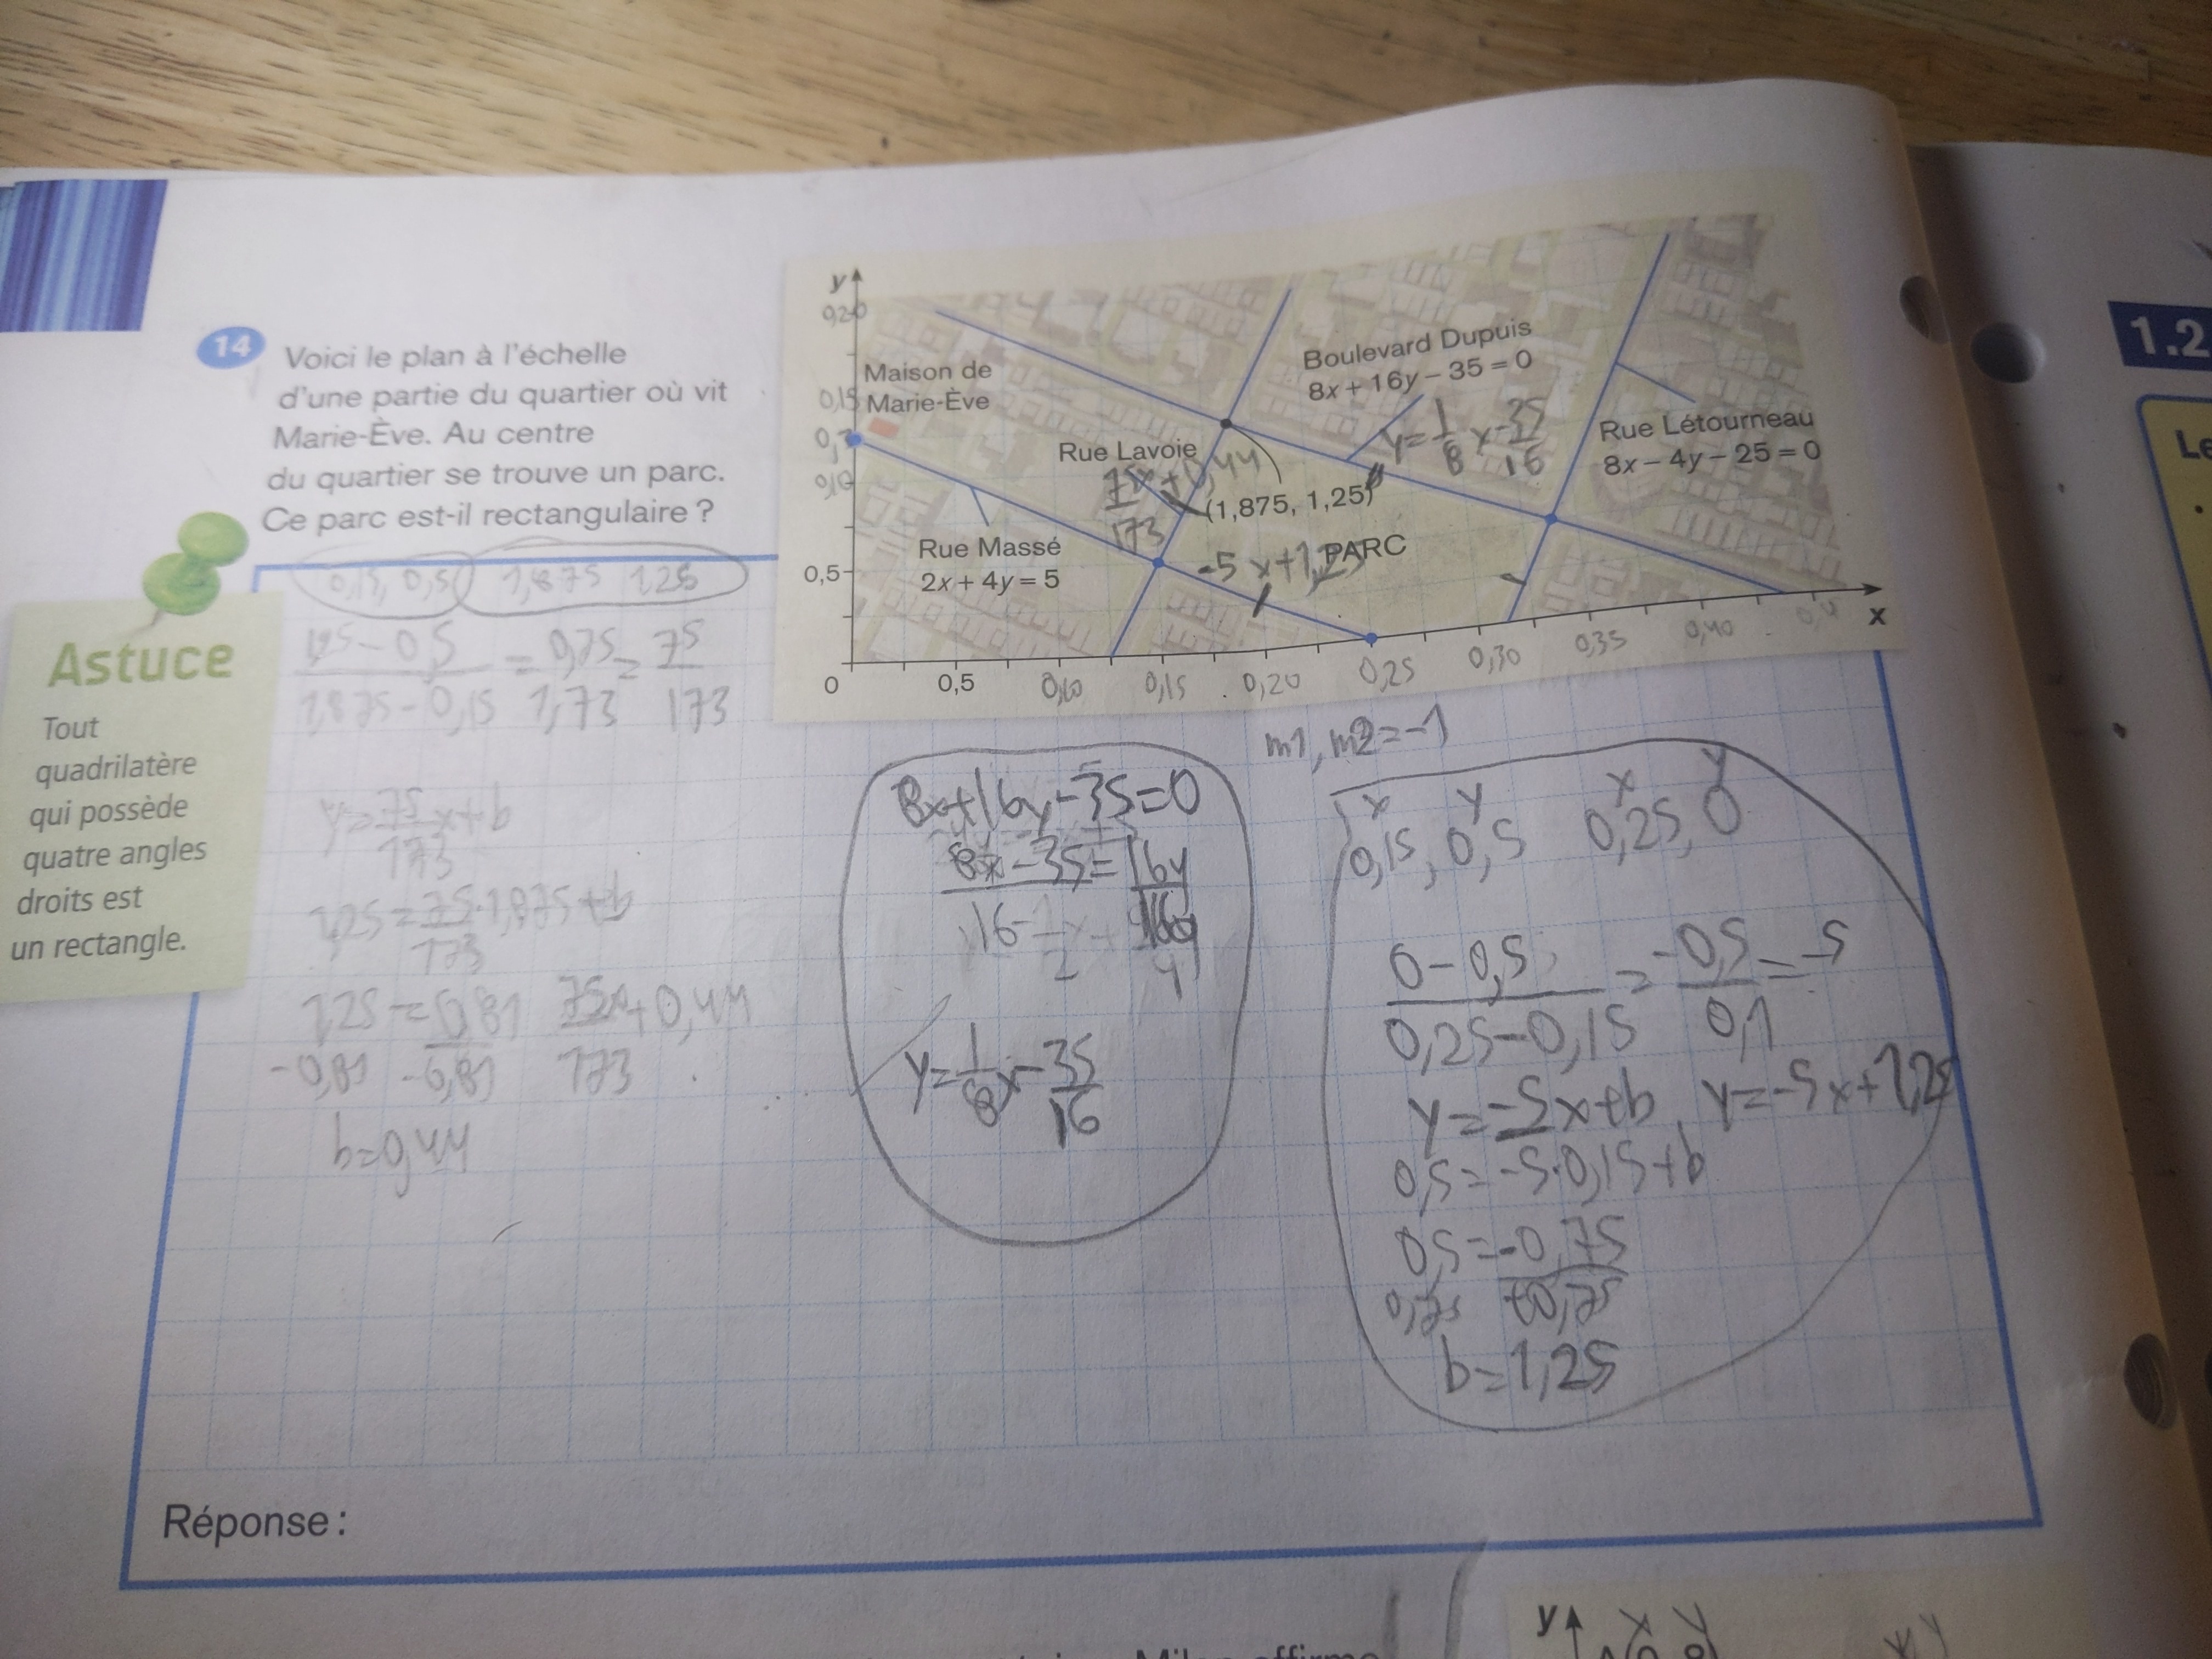 14 Voici le plan à l'échelle
d'une partie du quartier où vit
Marie-Ève. Au centre
du quartier se trouve un parc.
Ce parc est-il rectangulaire ?
Astuce
Tout
quadrilatère
qui possède
quatre angles
droits est
un rectangle.
y
0,20
0,15
0,10
0,5
Maison de
Marie-Ève
Rue Lavoie
75x+0,44
173
(1,875, 1,25)
Boulevard Dupuis
8x + 16y – 35 = 0
y=1/8x-35/16
Rue Létourneau
8x – 4y – 25 = 0
Rue Massé
2x + 4y = 5
-5x+1,25
PARC
x
0 0,5 0,10 0,15 0,20 0,25 0,30 0,35 0,40
0,15, 0,5 1,875 1,25
1,25-0,5 = 0,75 = 75
1,875-0,15 1,73 173
y=75x+b
173
1,25=75·1,875+b
173
1,25=0,81 75x+0,44
-0,81 -0,81 173
b=0,44
8x+16y-35=0
8x-35=16y
16
y=1/8x-35/16
m1, m2=-1
x y x y
0,15, 0,5 0,25, 0
0-0,5 = -0,5 = -5
0,25-0,15 0,1
y=-5x+b y=-5x+1,25
0,5=-5·0,15+b
0,5=-0,75
0,75 +0,75
b=1,25
Réponse :
1.2
Le
y x y